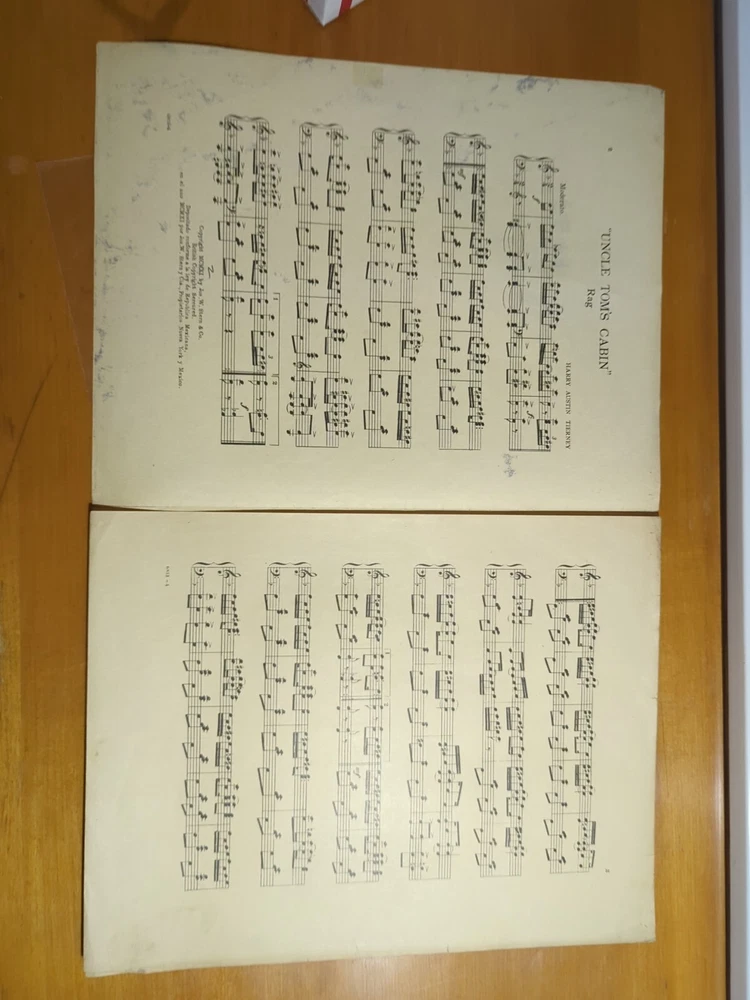 "UNCLE TOM'S CABIN"
Rag
HARRY AUSTIN TIERNEY
Moderato.
Copyright MCMXI by Jos. W. Stern & Co.
British Copyright Secured.
Depositado conforme a la ley de Republica Mexicana,
en el ano MCMXI por Jos. W. Stern y Cia., Propietarios Nueva York y Mexico.